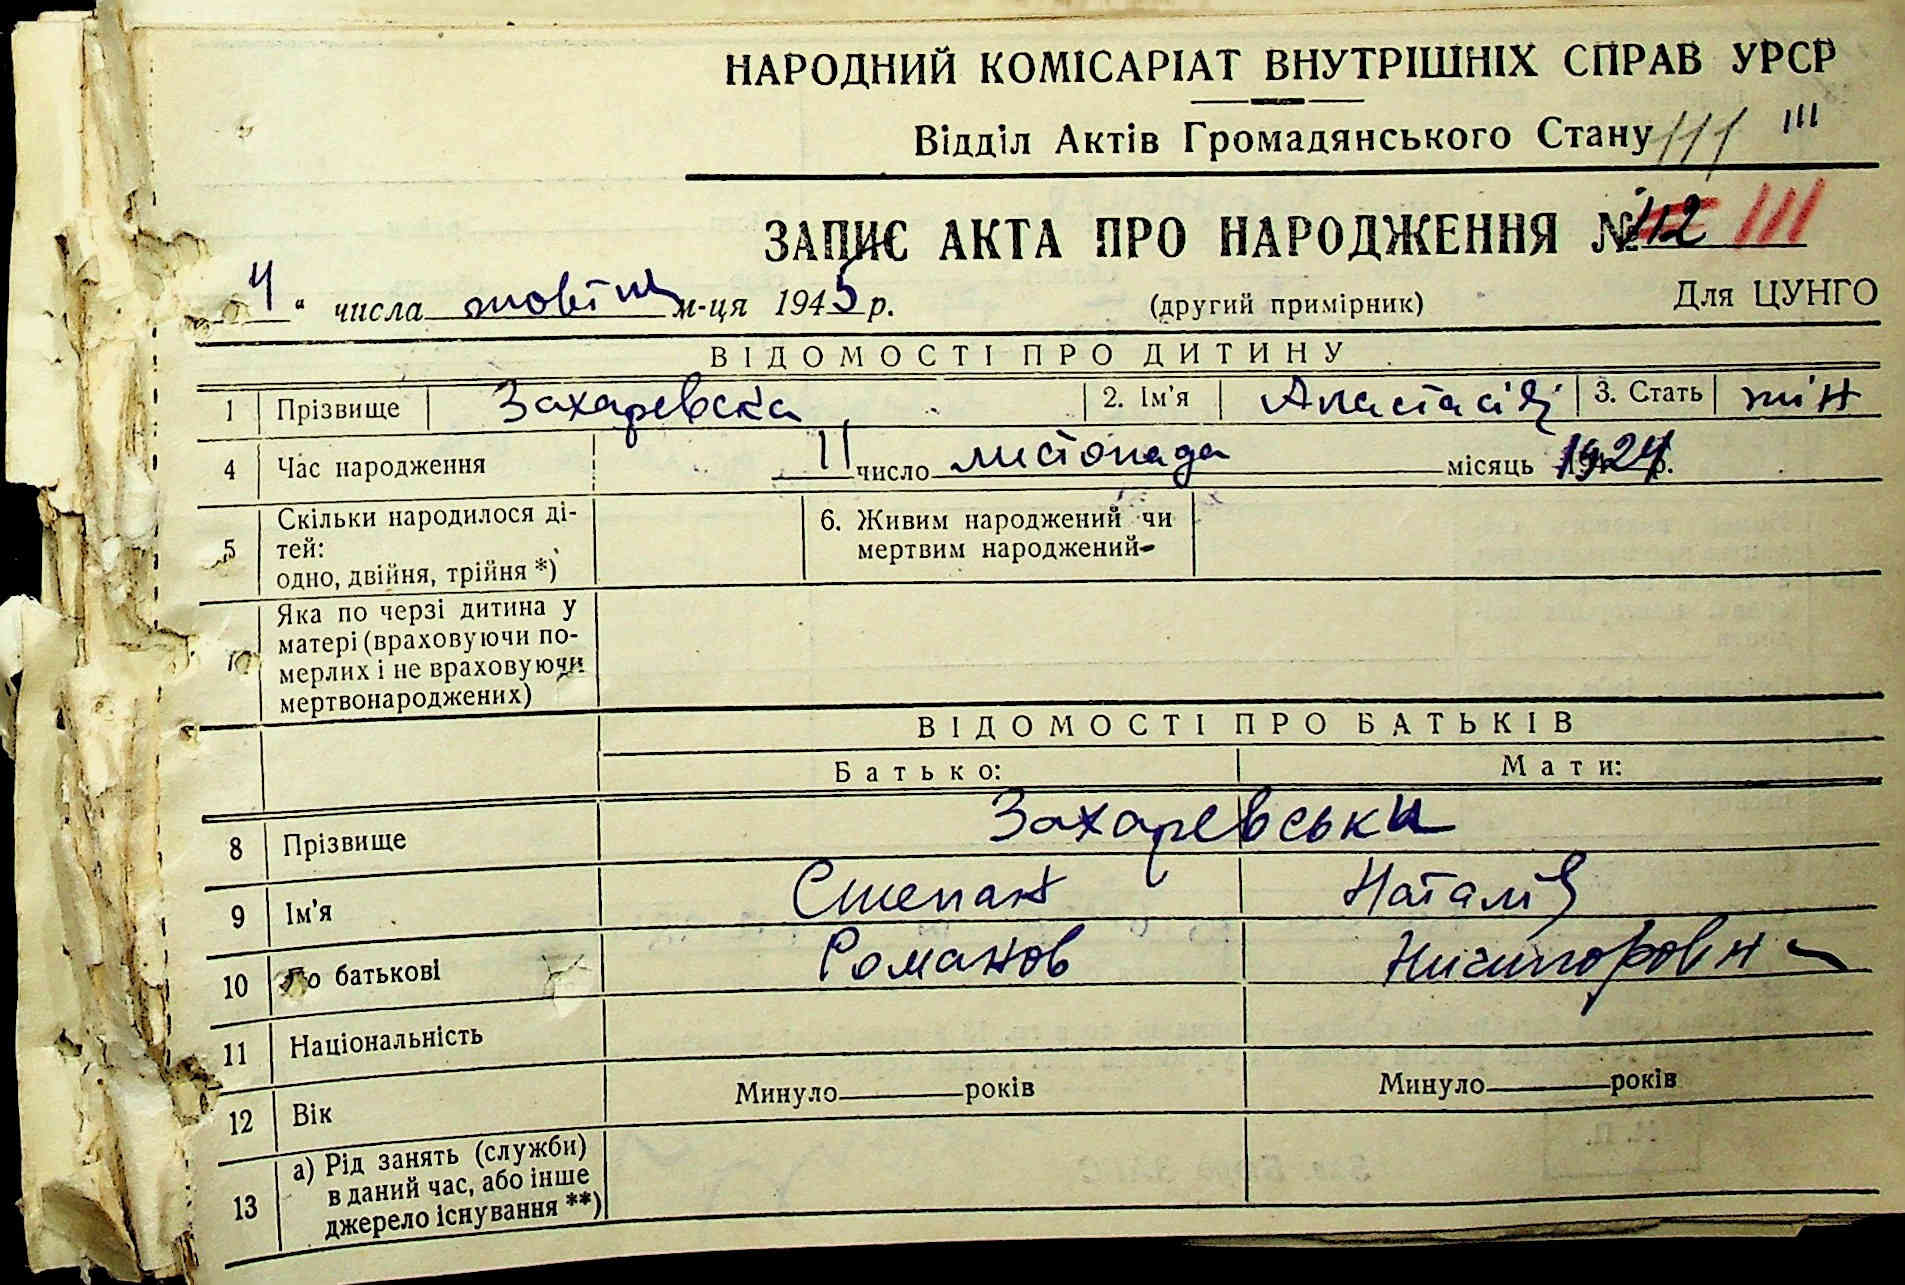 НАРОДНИЙ КОМІСАРІАТ ВНУТРІШНІХ СПРАВ УРСР
Відділ Актів Громадянського Стану 111 111
ЗАПИС АКТА ПРО НАРОДЖЕННЯ № 112 111
4 " числа жовтня м-ця 1945 р. (другий примірник) Для ЦУНГО
ВІДОМОСТІ ПРО ДИТИНУ
1 Прізвище Захаревска 2. Ім'я Анастасія 3. Стать жін
4 Час народження 11 число листопада місяць 1924 р.
5 Скільки народилося ді-
тей:
одно, двійня, трійня *)
6. Живим народжений чи
мертвим народжений-
Яка по черзі дитина у
матері (враховуючи по-
мерлих і не враховуючи
мертвонароджених)
ВІДОМОСТІ ПРО БАТЬКІВ
Батько: Мати:
8 Прізвище Захаревськи
9 Ім'я Степан Наталія
10 По батькові Романов Ничипоровн
11 Національність
12 Вік Минуло років Минуло років
13 а) Рід занять (служби)
в даний час, або інше
джерело існування **)